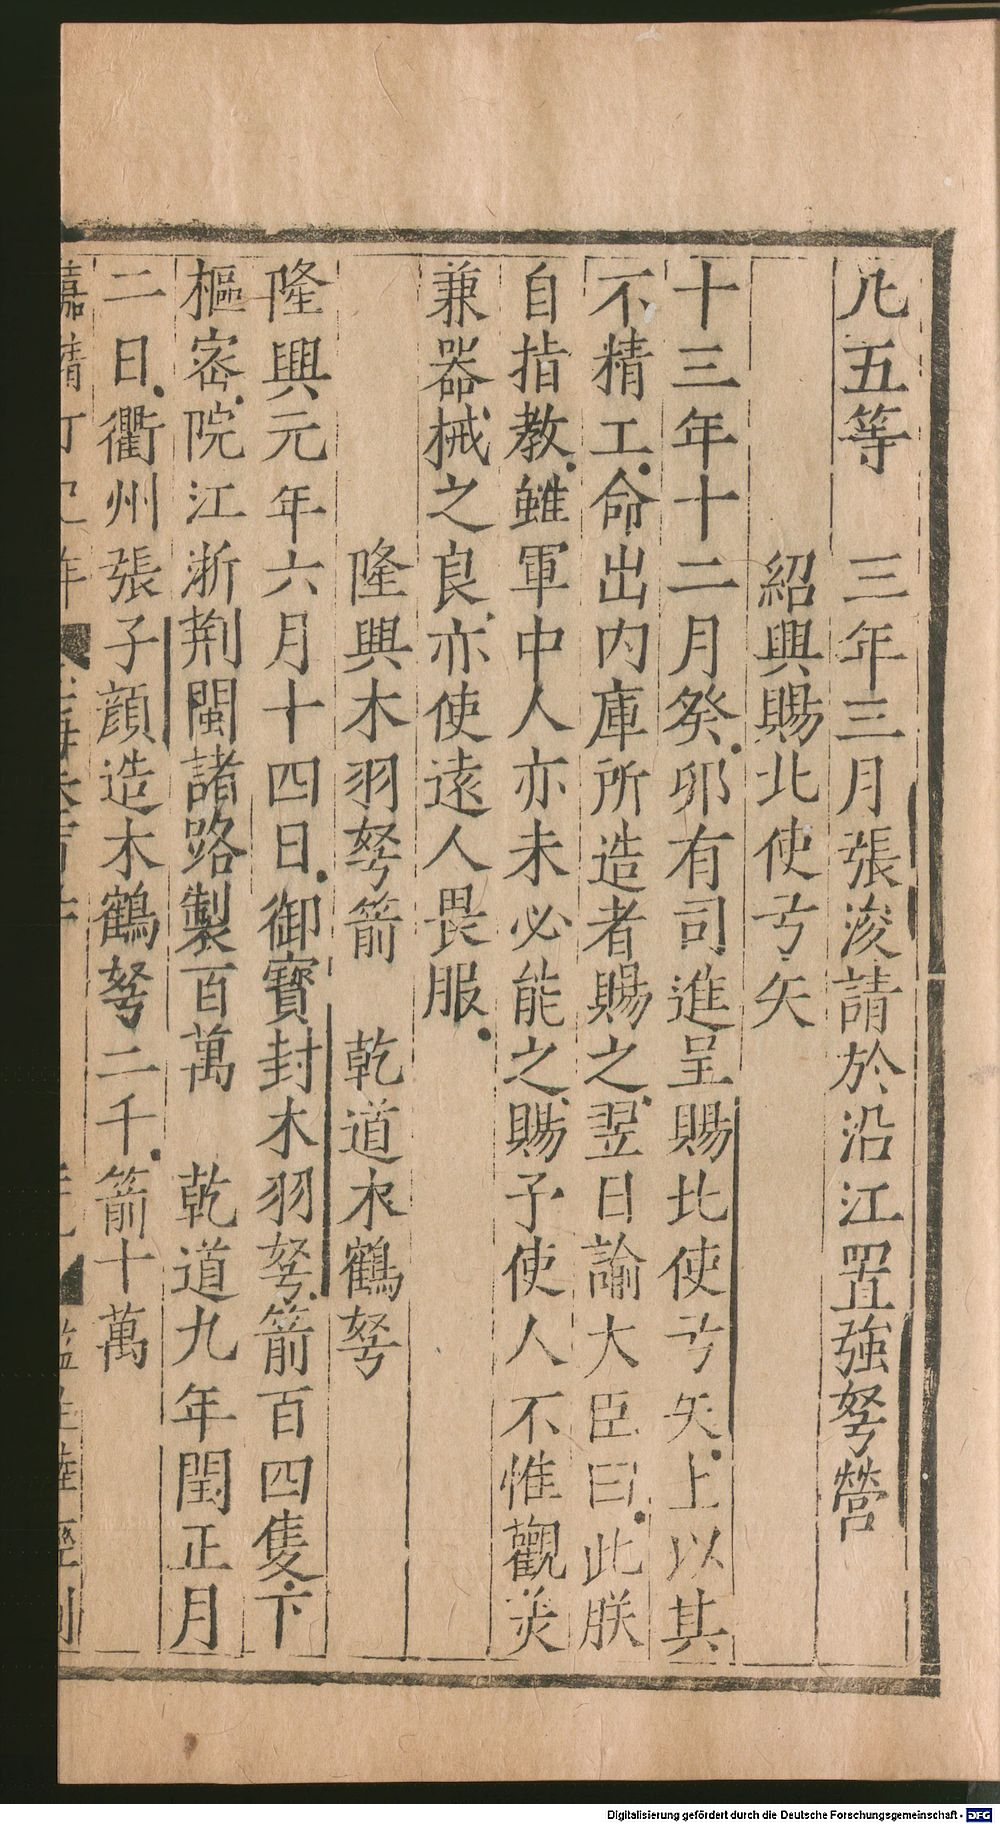 凡五等　三年三月張浚請於沿江置強弩營
紹興賜北使弓矢
十三年十二月癸卯有司進呈賜北使弓矢上以其
不精工命出内庫所造者賜之翌日諭大臣曰此朕
自指教雖軍中人亦未必能之賜予使人不惟觀美
兼器械之良亦使遠人畏服
隆興木羽弩箭　乾道木鶴弩
隆興元年六月十四日御寶封木羽弩箭百四隻下
樞密院江浙荆閩諸路製百萬　乾道九年閏正月
二日衢州張子顔造木鶴弩二千箭十萬
Digitalisierung gefördert durch die Deutsche Forschungsgemeinschaft - DFG